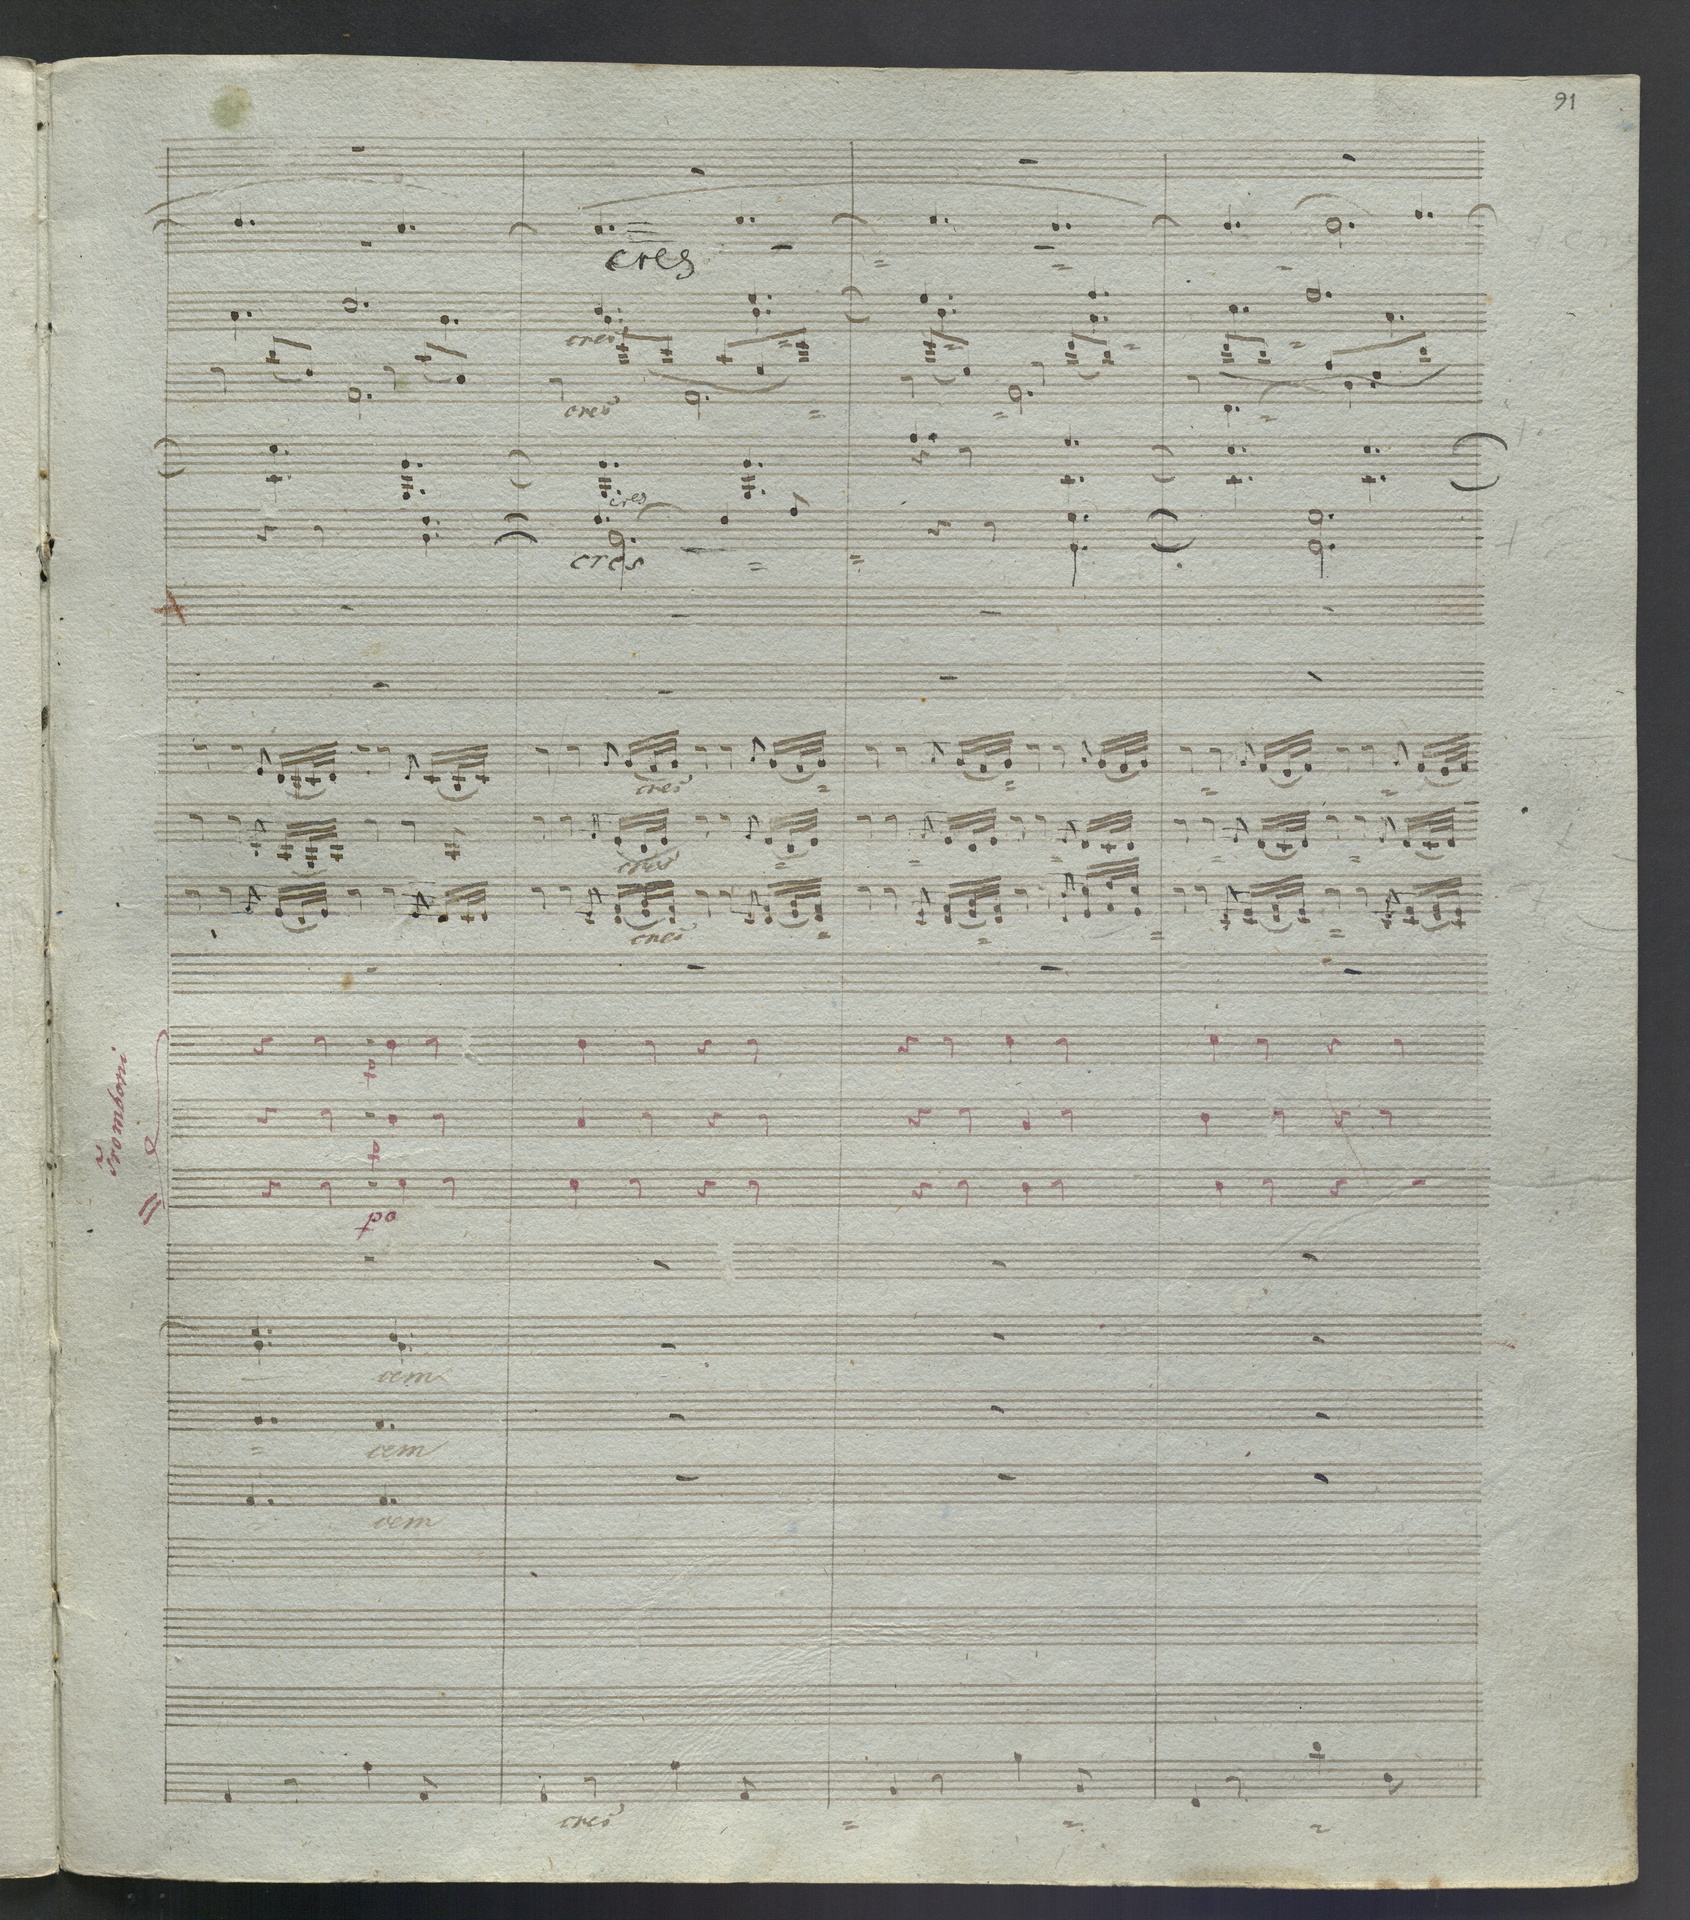 91
cres
cres
cres
cres
cres
cres
cres
cres
Tromboni
po
po
po
cem
cem
cem
cres